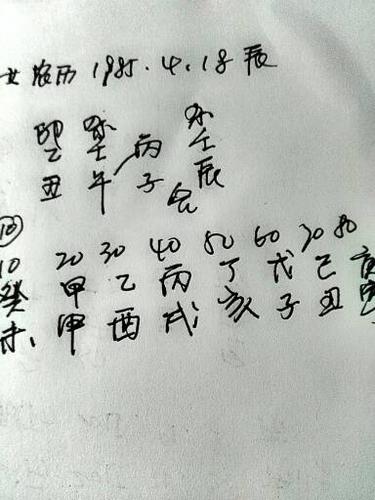 女 农历 1985.4.18 辰
印 杀 杀
乙 壬 丙 壬
丑 午 子 辰
合
⑩
10 20 30 40 50 60 70 80
癸 甲 乙 丙 丁 戊 己 庚
未 申 酉 戌 亥 子 丑 寅